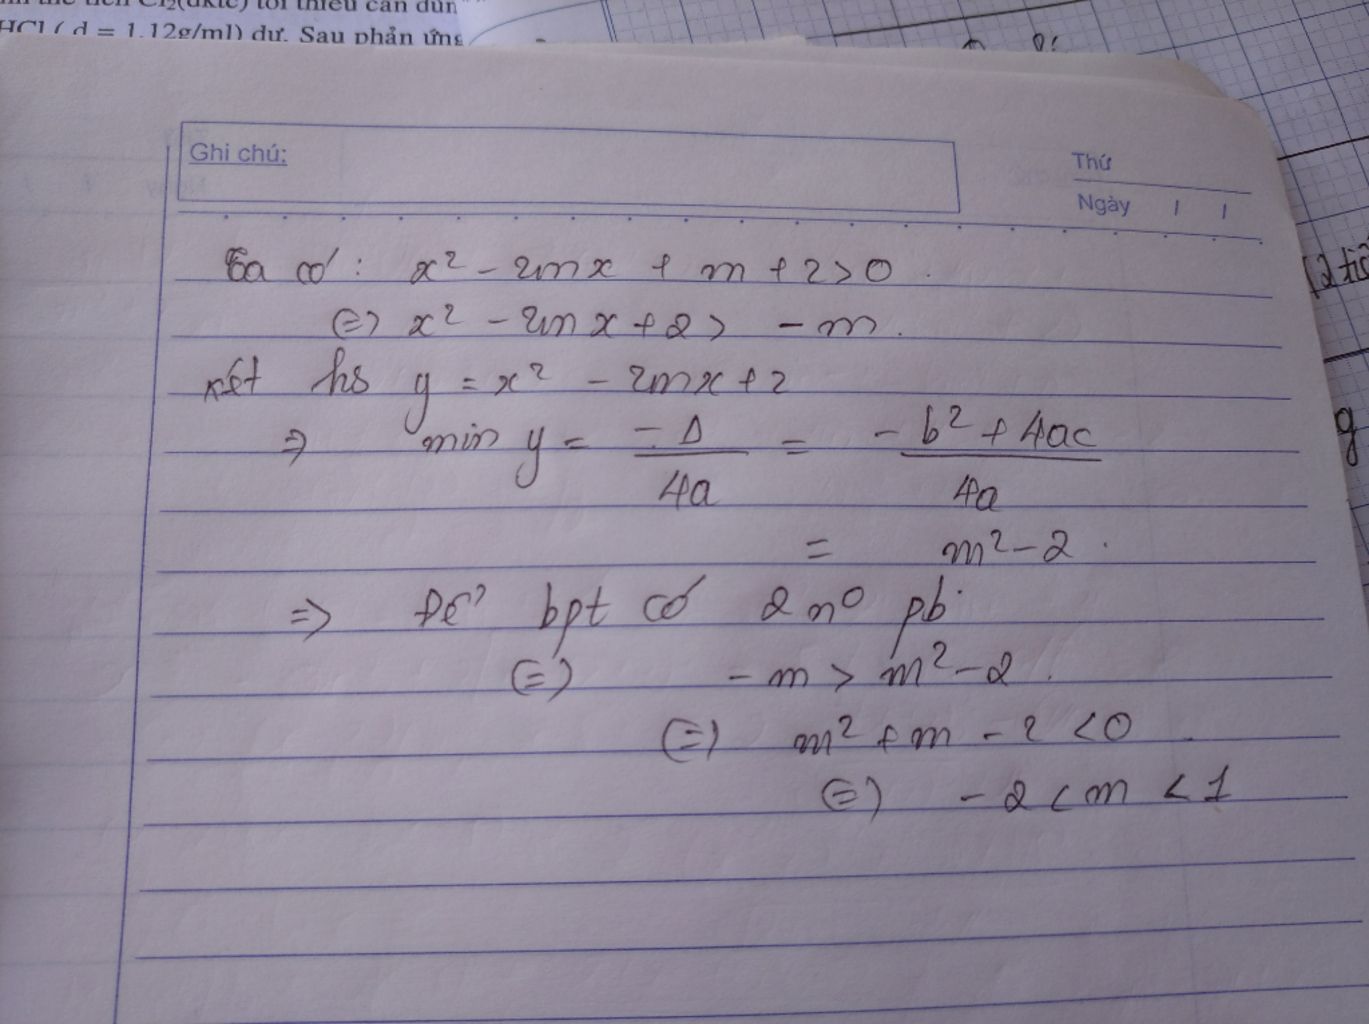 HCl ( d = 1,12g/ml) dư. Sau phản ứng
Ghi chú:
Thứ
Ngày / /
Ta có : x² - 2mx + m + 2 > 0 .
(=) x² - 2mx + 2 > - m .
xét hs y = x² - 2mx + 2
=> min y = -Δ/4a = -b² + 4ac/4a
= m² - 2 .
=> Để bpt có 2 n⁰ pb
(=) - m > m² - 2 .
(=) m² + m - 2 < 0
(=) - 2 < m < 1